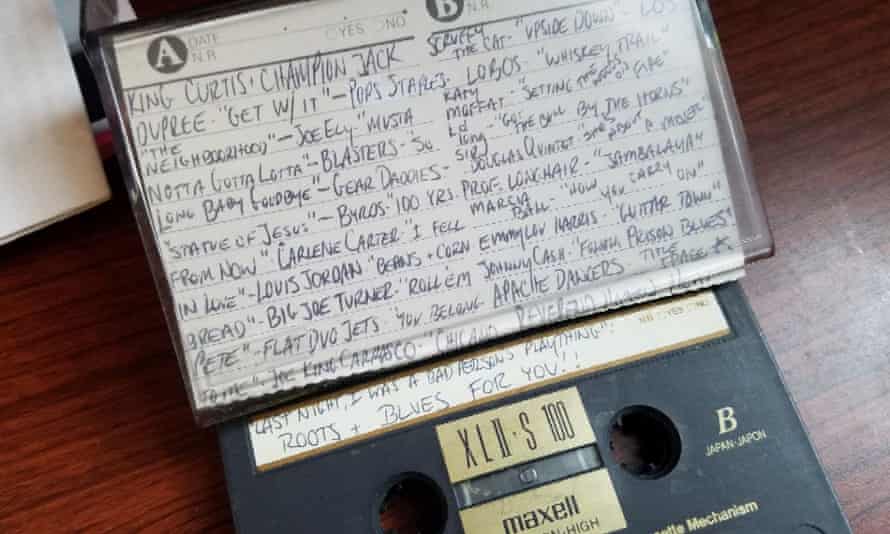 A DATE N.R. YES NO
B N.R.
KING CURTIS + CHAMPION JACK
DUPREE - "GET W/ IT" - POPS STAPLES -
"THE
NEIGHBOORHOOD" - JOE ELY - "MUSTA
NOTTA GOTTA LOTTA" - BLASTERS - "SO
LONG BABY GOODBYE" - GEAR DADDIES -
"STATUE OF JESUS" - BYRDS - "100 YRS.
FROM NOW" - CARLENE CARTER - "I FELL
IN LOVE" - LOUIS JORDAN - "BEANS + CORN
BREAD" - BIG JOE TURNER - "ROLL 'EM
PETE" - FLAT DUO JETS - "YOU BELONG
TO ME" - JOE KING CARRASCO - "CHICAGO
SCRUFFY
THE CAT - "UPSIDE DOWN" - LOS
LOBOS - "WHISKEY TRAIL"
KATY
MOFFAT - "SETTING THE WOODS ON FIRE"
"THE BULL BY THE HORNS"
SIR
DOUGLAS QUINTET - "SHE'S ABOUT A MOVER"
PROF. LONGHAIR - "JAMBALAYA"
MARCIA
BALL - "HOW YOU CARRY ON"
EMMYLOU HARRIS - "GUITAR TOWN"
JOHNNY CASH - "FOLSOM PRISON BLUES"
APACHE DANCERS TITLE
REVEREND
YES NO
LAST NIGHT, I WAS A BAD PERSON'S PLAYTHING"!
ROOTS + BLUES FOR YOU!!
XLII-S 100
maxell
N-HIGH
B
JAPAN-JAPON
ette Mechanism